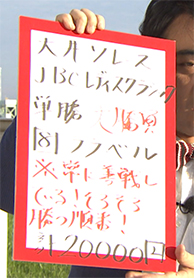 大井ソレス
JBCレディスクラシック
単勝
[8]ノノベル
※常に善戦し
ている!そろそろ
勝つ順番!
計20000円